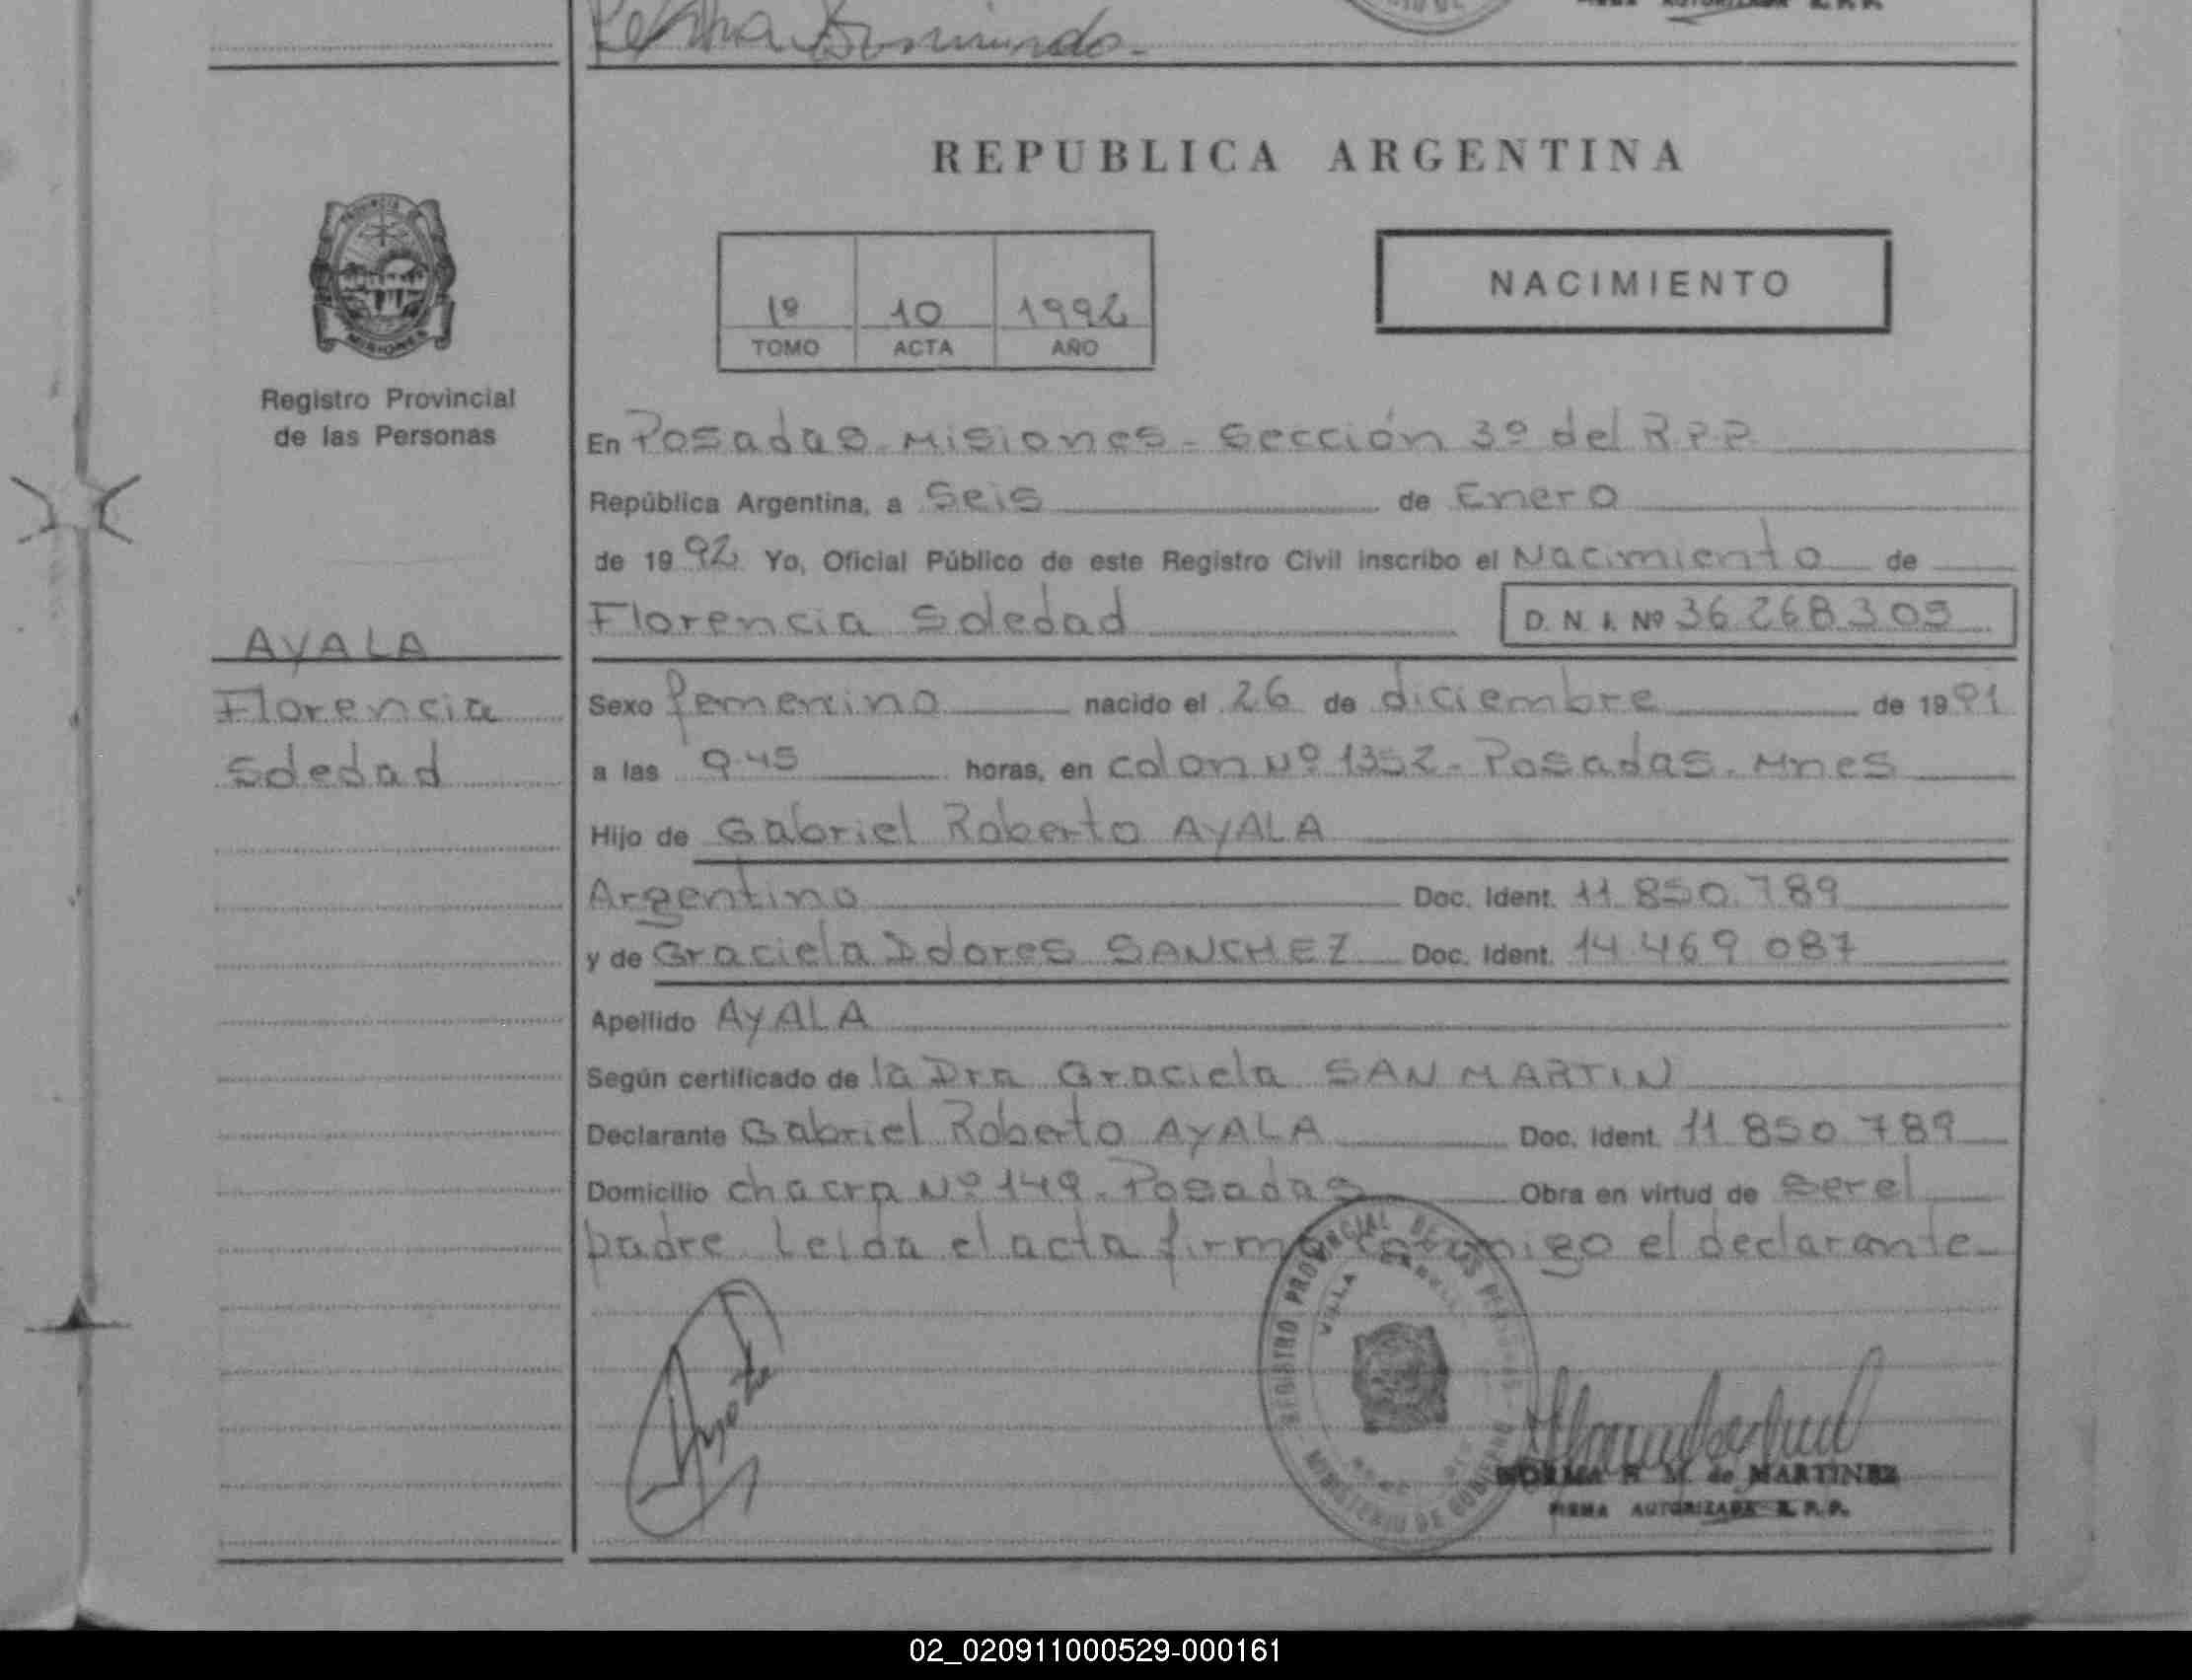 FIRMA AUTORIZADA R. P. P.
REPUBLICA ARGENTINA
PROVINCIA DE
MISIONES
Registro Provincial
de las Personas
1º 10 1992
TOMO ACTA AÑO
NACIMIENTO
AYALA
Florencia
Soledad
En Posadas - Misiones - Sección 3º del R.P.P.
República Argentina, a Seis de Enero
de 1992 Yo, Oficial Público de este Registro Civil inscribo el Nacimiento de
Florencia Soledad D. N. I. Nº 36.268.309
Sexo femenino nacido el 26 de diciembre de 1991
a las 9.45 horas, en Colon Nº 1352 - Posadas. Mnes
Hijo de Gabriel Roberto AYALA
Argentino Doc. Ident. 11.850.789
y de Graciela Dolores SANCHEZ Doc. Ident. 14.469.087
Apellido AYALA
Según certificado de la Dra Graciela SAN MARTIN
Declarante Gabriel Roberto AYALA Doc. Ident. 11.850.789
Domicilio chacra Nº 149. Posadas Obra en virtud de ser el
padre. Leida el acta firma conmigo el declarante
REGISTRO PROVINCIAL DE LAS PERSONAS
VILLA
MINISTERIO DE GOBIERNO
NORMA M. de MARTINEZ
FIRMA AUTORIZADA R. P. P.
02_020911000529-000161